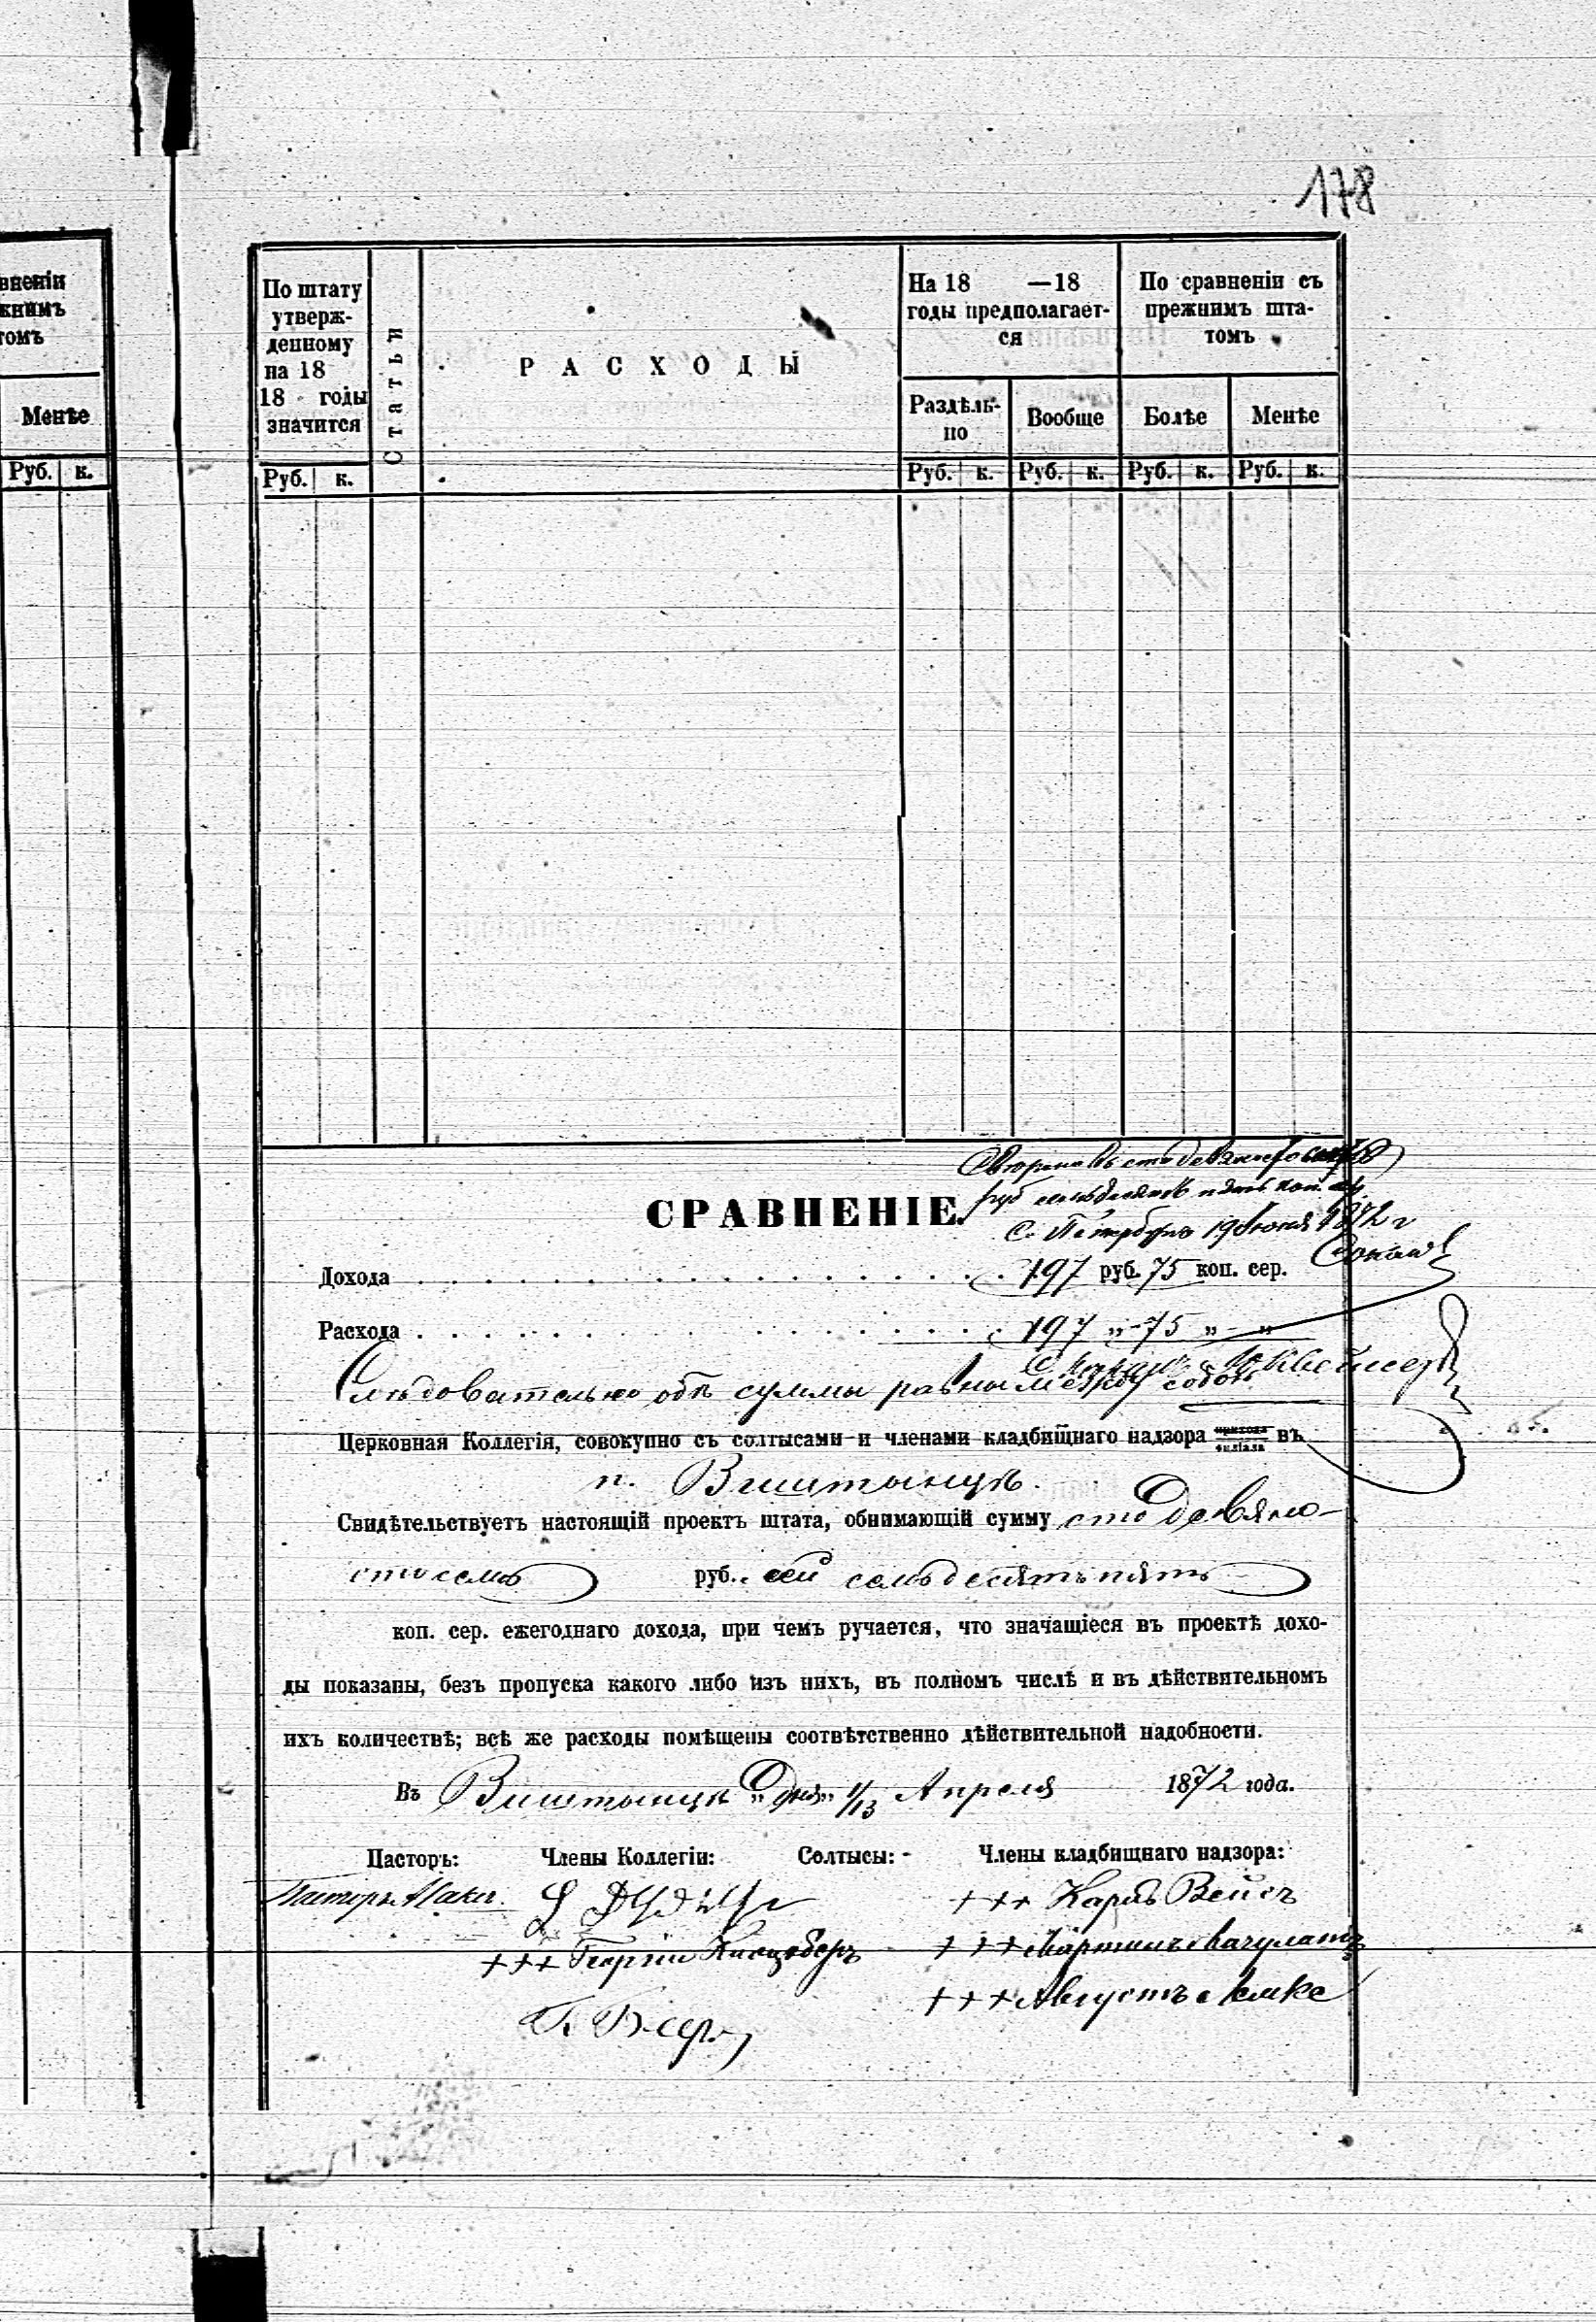 178
вненіи
жнимъ
томъ
Менѣе
Руб. к.
По штату
утверж-
денному
на 18
18 годы
значится
Статьи
РАСХОДЫ
На 18 —18
годы предполагает-
ся
По сравненіи съ
прежнимъ шта-
томъ
Раздѣль-
но
Вообще
Болѣе
Менѣе
Руб. к.
Руб. к. Руб. к. Руб. к. Руб. к.
сто девяносто семь
руб семьдесятъ пять коп. сер
С. Петербургъ 19 1872 г
СРАВНЕНІЕ.
Дохода . . . . . . . . . . . . . . . . 197 руб. 75 коп. сер.
Расхода . . . . . . . . . . . . . . . . 197 „ 75 „ — „
Слѣдовательно обѣ суммы равны между собою
Церковная Коллегія, совокупно съ солтысами и членами кладбищнаго надзора прихода филіала въ
п. Виштынцѣ.
Свидѣтельствуетъ настоящій проектъ штата, обнимающій сумму сто девяно-
сто семь руб. семьдесятъ пять
коп. сер. ежегоднаго дохода, при чемъ ручается, что значащіеся въ проектѣ дохо-
ды показаны, безъ пропуска какого либо изъ нихъ, въ полномъ числѣ и въ дѣйствительномъ
ихъ количествѣ; всѣ же расходы помѣщены соотвѣтственно дѣйствительной надобности.
Въ Виштынцѣ „ дня „ 1/13 Апреля 1872 года.
Пасторъ: Члены Коллегіи: Солтысы: Члены кладбищнаго надзора:
Пасторъ +++ Карлъ Вейсъ
+++ Георгій +++ Мартинъ
+++ Августъ Лемке